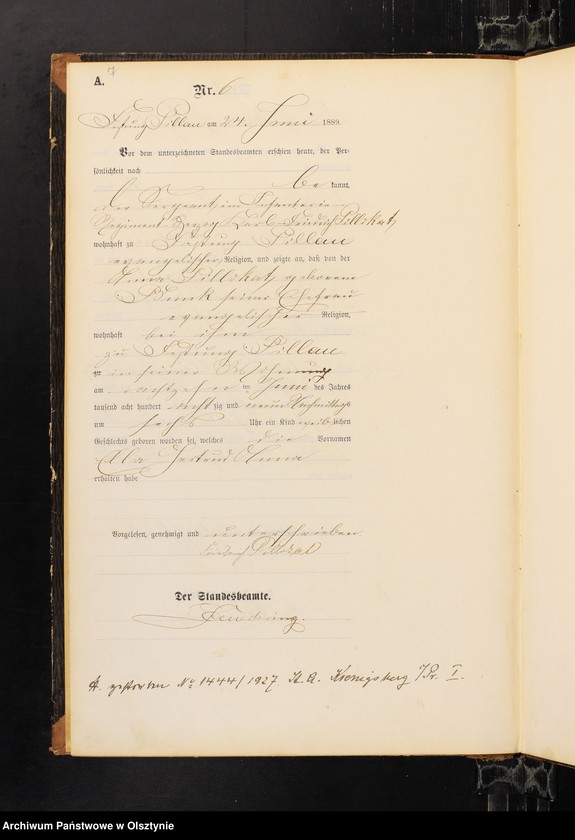 A.
7
Nr. 6
Festung Pillau am 24. Juni 1889.
Vor dem unterzeichneten Standesbeamten erschien heute, der Per-
sönlichkeit nach
be kannt,
der Sergeant im Infanterie
Regiment Herzog Carl Friedrich Pillokat,
wohnhaft zu Festung Pillau
evangelischer Religion, und zeigte an, daß von der
Anna Pillokat, geborene
Bunk seine Ehefrau
evangelischer Religion,
wohnhaft bei ihm
zu Festung Pillau
zu in seiner Wohnung
am achtzehn ten Juni des Jahres
tausend acht hundert achtzig und neun Nachmittags
um sechs Uhr ein Kind weiblichen
Geschlechts geboren worden sei, welches die Vornamen
Ella Gertrud Anna
erhalten habe
Vorgelesen, genehmigt und unterschrieben
Friedrich Pillokat
Der Standesbeamte.
A. gestorben № 1444/1927 St. A. Koenigsberg i/Pr. I.
Archiwum Państwowe w Olsztynie